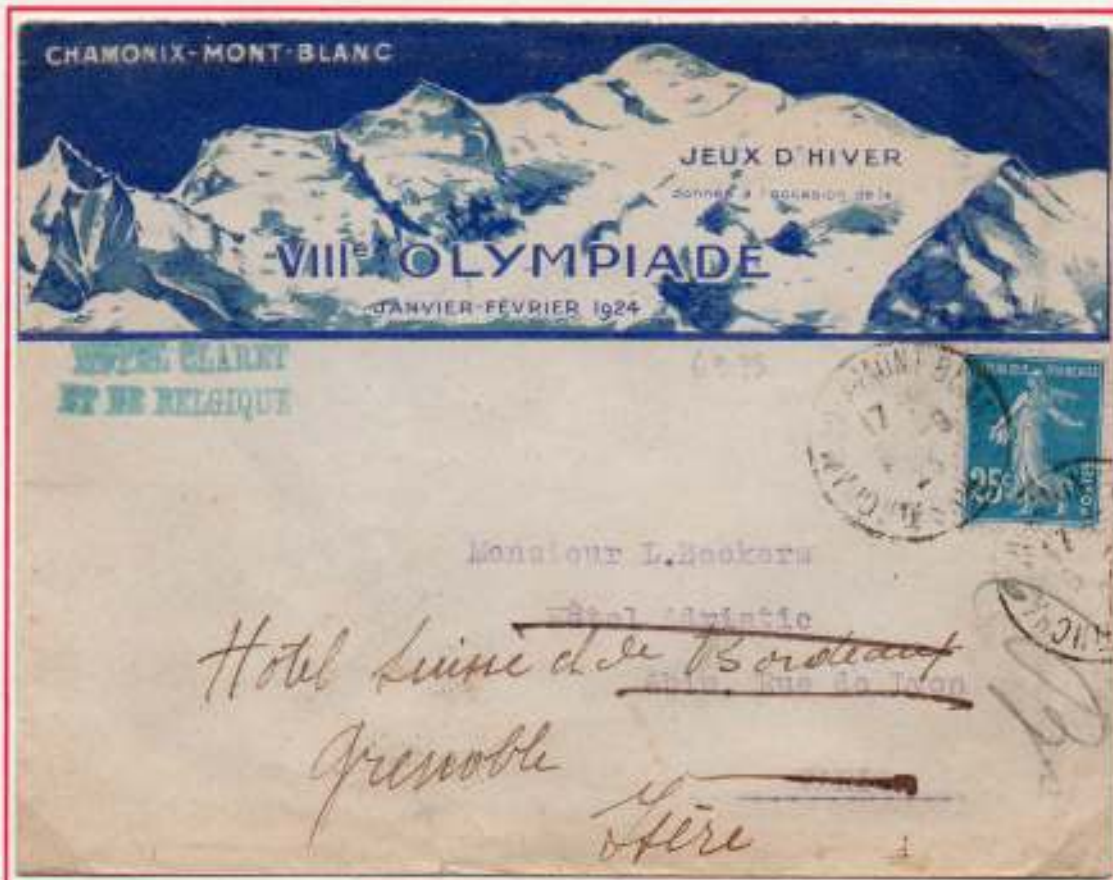 CHAMONIX-MONT-BLANC
JEUX D'HIVER
donnés à l'occasion de la
VIIIe OLYMPIADE
JANVIER-FÉVRIER 1924
CLARET
ET DE BELGIQUE
MONT-BL
17
25c
POSTES
Monsieur L.Hockers
Hôtel
Rue de Lyon
Hotel Suisse et de Bordeaux
Grenoble
Isère